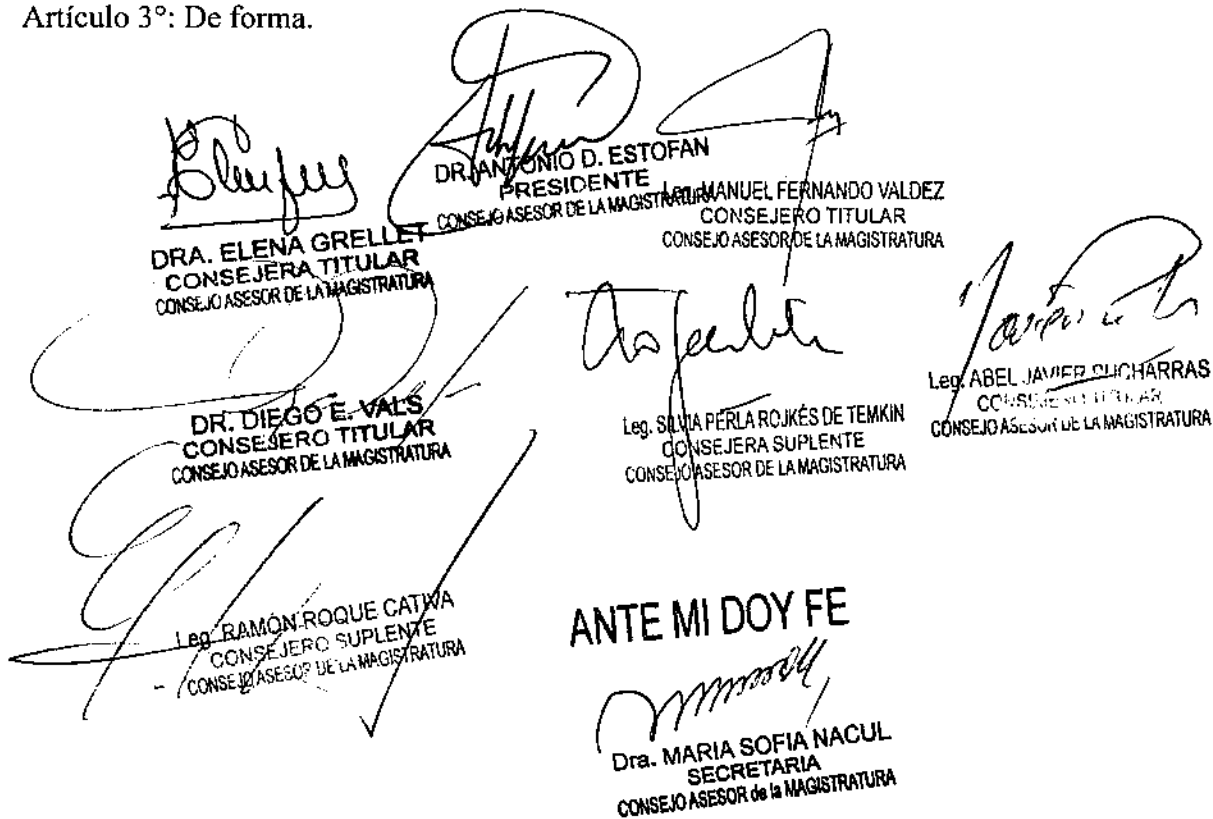 Artículo 3°: De forma.
DR. ANTONIO D. ESTOFAN
PRESIDENTE
CONSEJO ASESOR DE LA MAGISTRATURA
Leg. MANUEL FERNANDO VALDEZ
CONSEJERO TITULAR
CONSEJO ASESOR DE LA MAGISTRATURA
DRA. ELENA GRELLET
CONSEJERA TITULAR
CONSEJO ASESOR DE LA MAGISTRATURA
DR. DIEGO E. VALS
CONSEJERO TITULAR
CONSEJO ASESOR DE LA MAGISTRATURA
Leg. SILVIA PERLA ROJKÉS DE TEMKIN
CONSEJERA SUPLENTE
CONSEJO ASESOR DE LA MAGISTRATURA
Leg. ABEL JAVIER PUCHARRAS
CONSEJERO TITULAR
CONSEJO ASESOR DE LA MAGISTRATURA
Leg. RAMÓN ROQUE CATIVA
CONSEJERO SUPLENTE
CONSEJO ASESOR DE LA MAGISTRATURA
ANTE MI DOY FE
Dra. MARIA SOFIA NACUL
SECRETARIA
CONSEJO ASESOR de la MAGISTRATURA